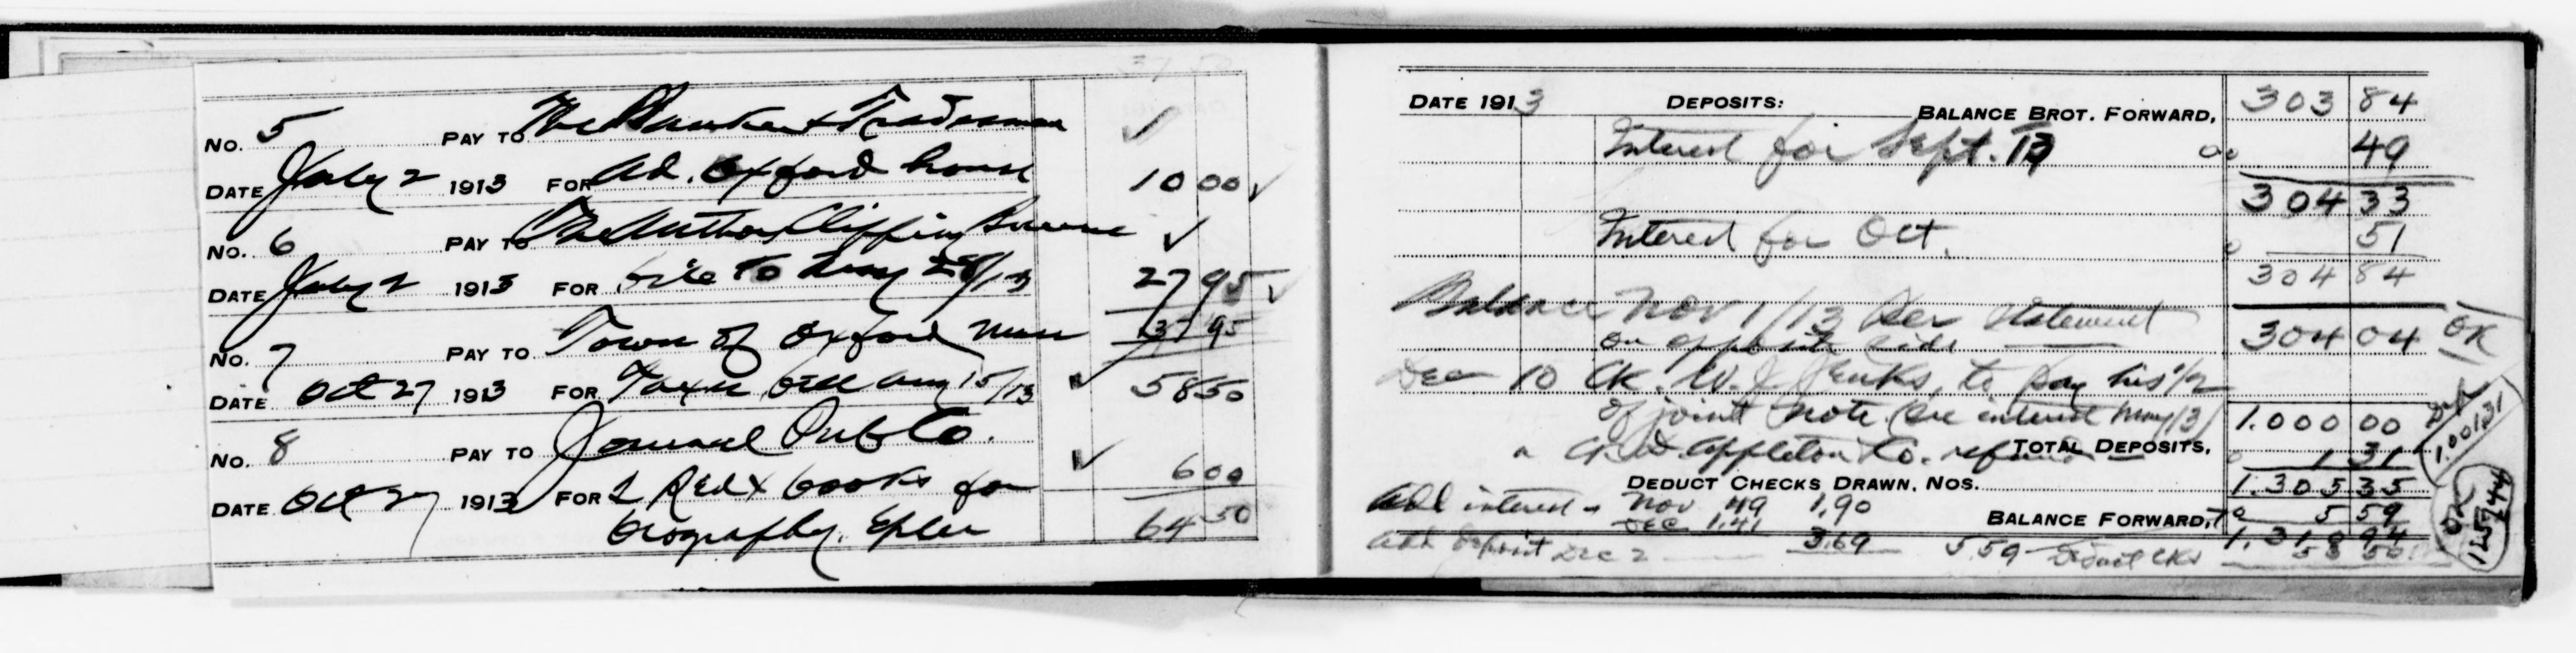 No. 5 PAY TO The Banker & Tradesman ✓
DATE July 2 1913 FOR Ad. Oxford house 10 00 ✓
No. 6 PAY TO The Author Clipping Bureau ✓
DATE July 2 1913 FOR bill to 27 95 ✓
37 95
No. 7 PAY TO Town of Oxford Mass
DATE Oct 27 1913 FOR Taxes bill Aug 15/13 ✓ 58 50
No. 8 PAY TO Journal Pub Co.
DATE Oct 27 1913 FOR 2 Red X books for ✓ 6 00
biography. Epler 64 50
DATE 1913 DEPOSITS: BALANCE BROT. FORWARD, 303 84
Interest for Sept. 13 49
304 33
Interest for Oct. 51
304 84
Balance Nov 1/13 per statement
on opposite side 304 04 OK
Dec 10 Ck. W. J. Jenks, to pay his 1/2
of joint note 1.000 00
Appleton Co. refund TOTAL DEPOSITS, 1 31
1.001 31
DEDUCT CHECKS DRAWN, NOS. 1.305 35
Add interest Nov 49 1.90 BALANCE FORWARD, 5 59
Dec 1.41
Add deposit Dec 2 3.69 5.59 Deduct cks 58 50
OK